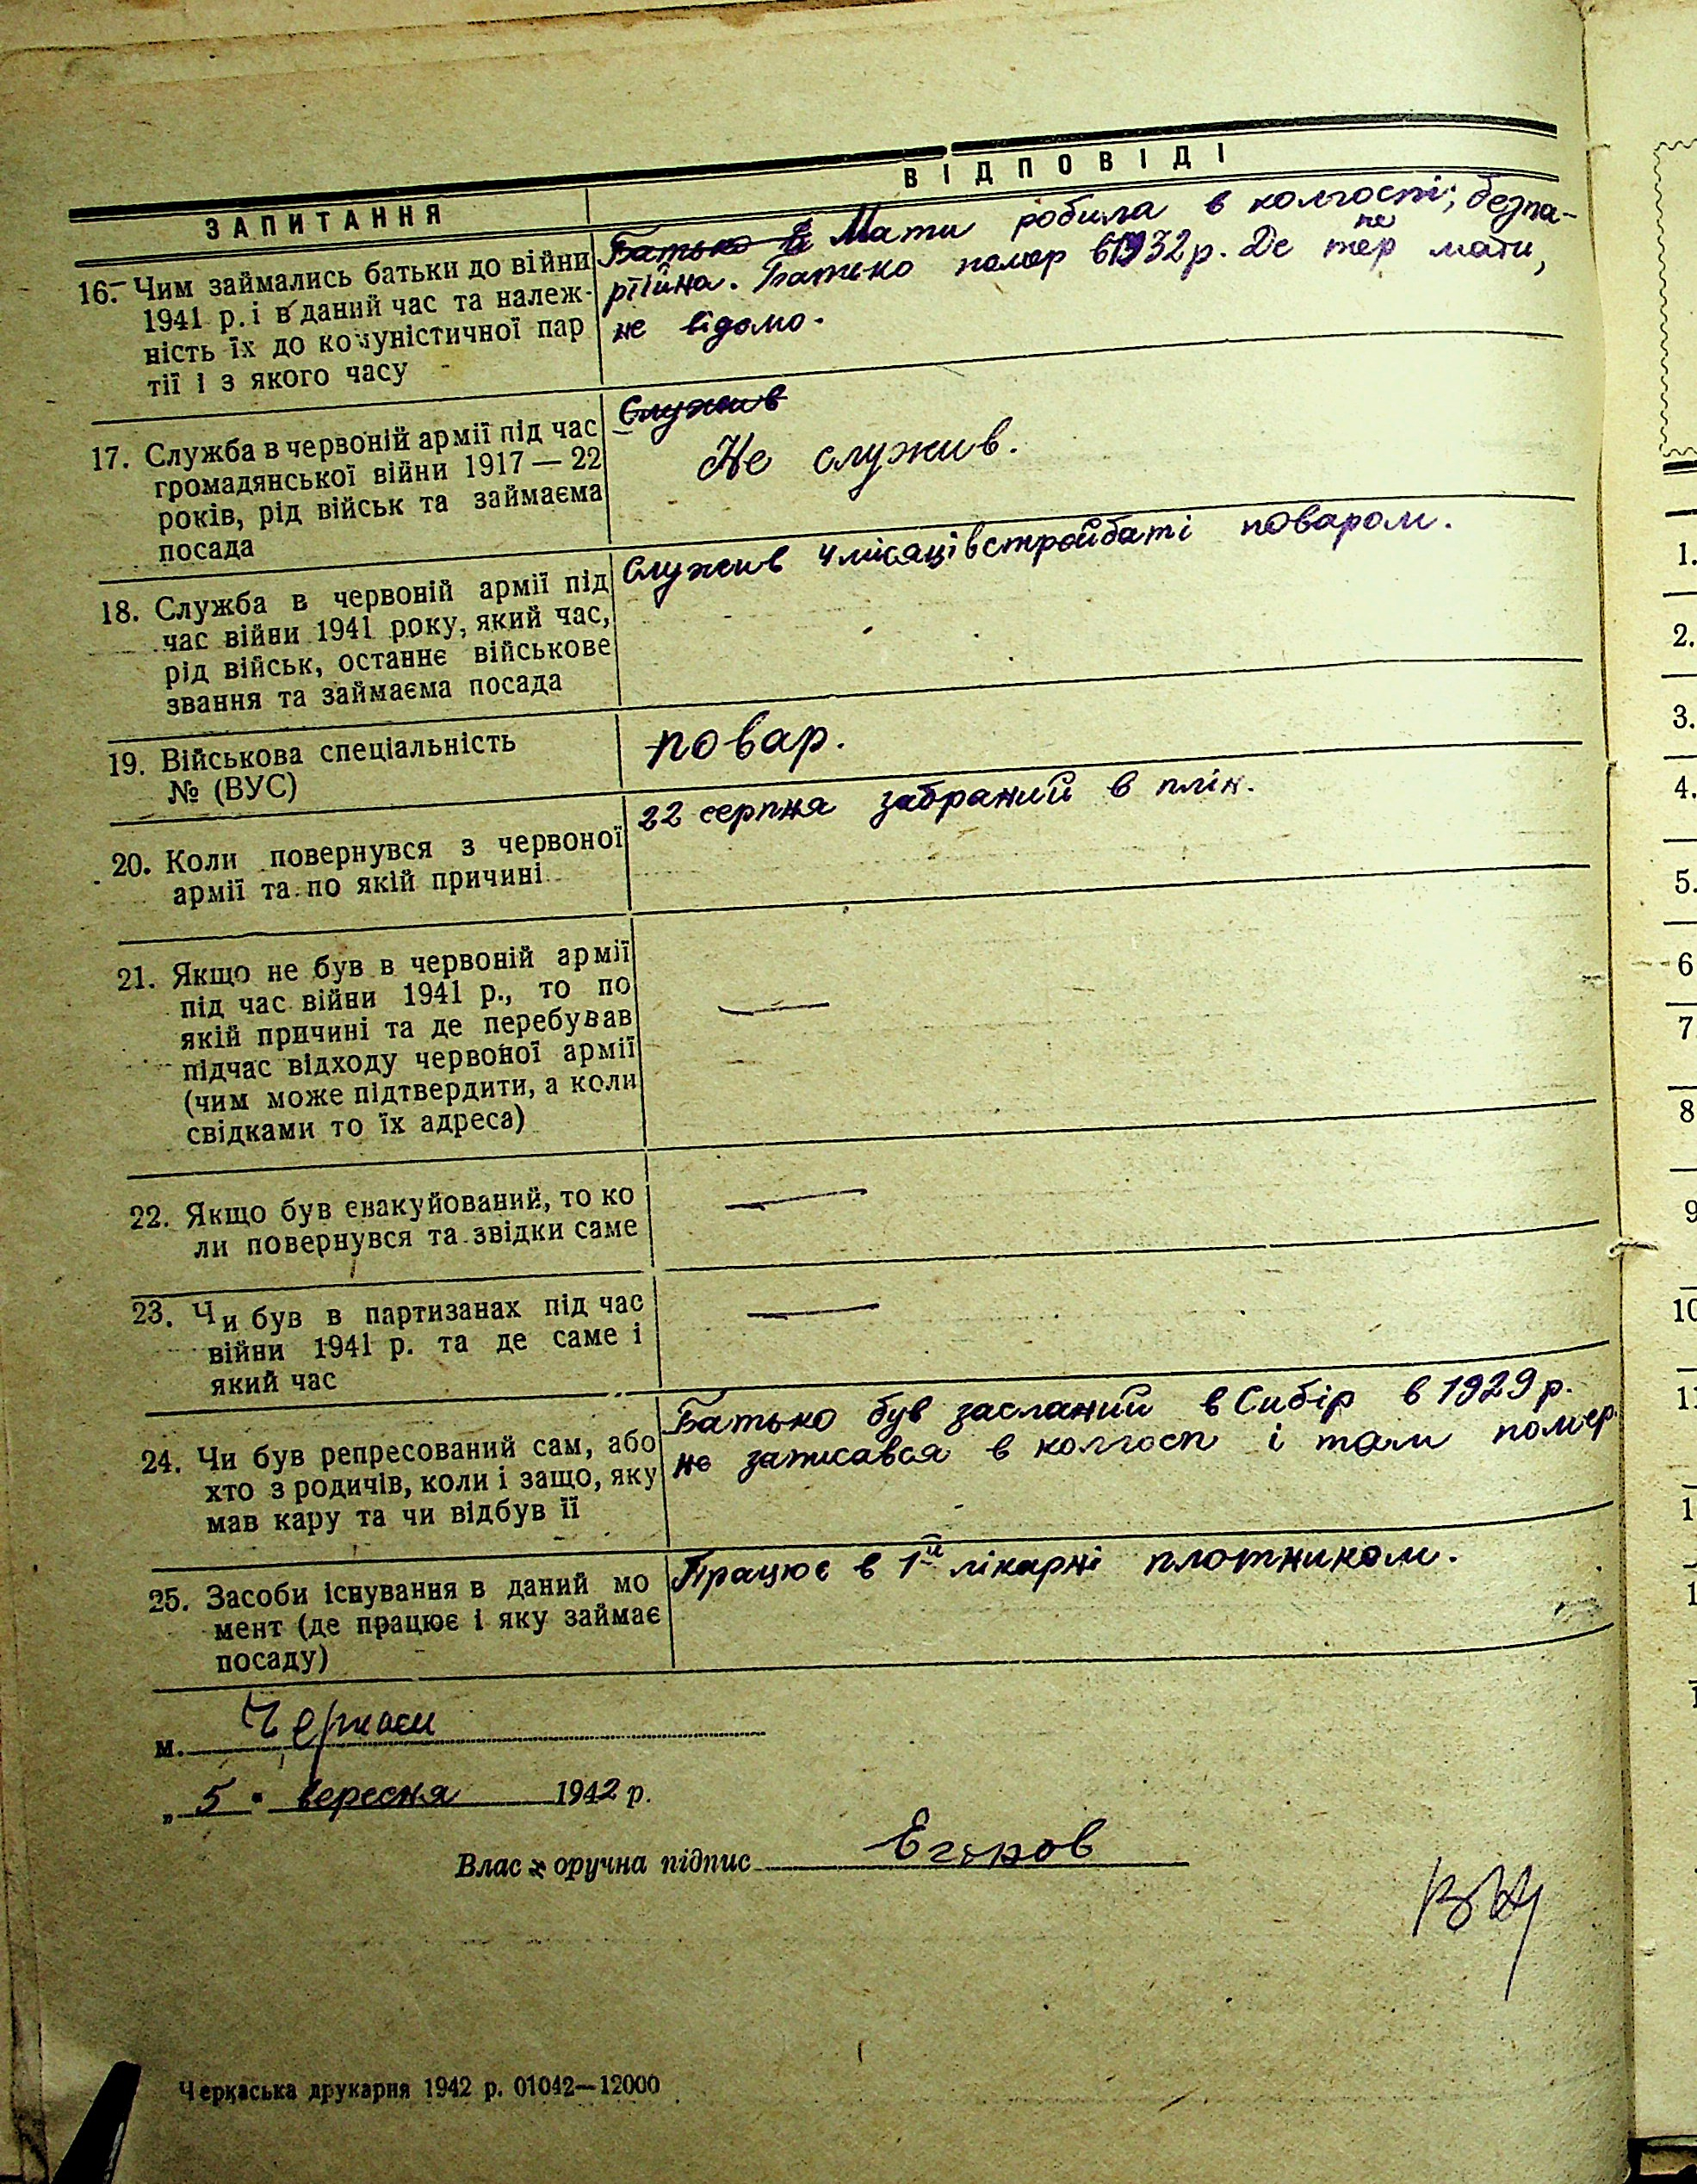 ЗАПИТАННЯ
ВІДПОВІДІ
16. Чим займались батьки до війни
1941 р. і в даний час та належ-
ність їх до комуністичної пар
тії і з якого часу
Батько в Мати робила в колгоспі; безпа-
ртійна. Батько помер в 1932 р. Де тепер мати,
не відомо.
17. Служба в червоній армії під час
громадянської війни 1917 — 22
років, рід військ та займаєма
посада
Служив
Не служив.
18. Служба в червоній армії під
час війни 1941 року, який час,
рід військ, останнє військове
звання та займаєма посада
Служив 4 місяці в стройбаті поваром.
19. Військова спеціальність
№ (ВУС)
повар.
20. Коли повернувся з червоної
армії та по якій причині
22 серпня забраний в плін.
21. Якщо не був в червоній армії
під час війни 1941 р., то по
якій причині та де перебував
підчас відходу червоної армії
(чим може підтвердити, а коли
свідками то їх адреса)
—
22. Якщо був евакуйований, то ко
ли повернувся та звідки саме
—
23. Чи був в партизанах під час
війни 1941 р. та де саме і
який час
—
24. Чи був репресований сам, або
хто з родичів, коли і защо, яку
мав кару та чи відбув її
Батько був засланий в Сибір в 1929 р.
не записався в колгосп і там помер
25. Засоби існування в даний мо
мент (де працює і яку займає
посаду)
Працює в 1й лікарні плотником.
м. Черкаси
„ 5 " вересня 1942 р.
Власноручна підпис
Черкаська друкарня 1942 р. 01042—12000
1.
2.
3.
4.
5.
6
7
8
9
10